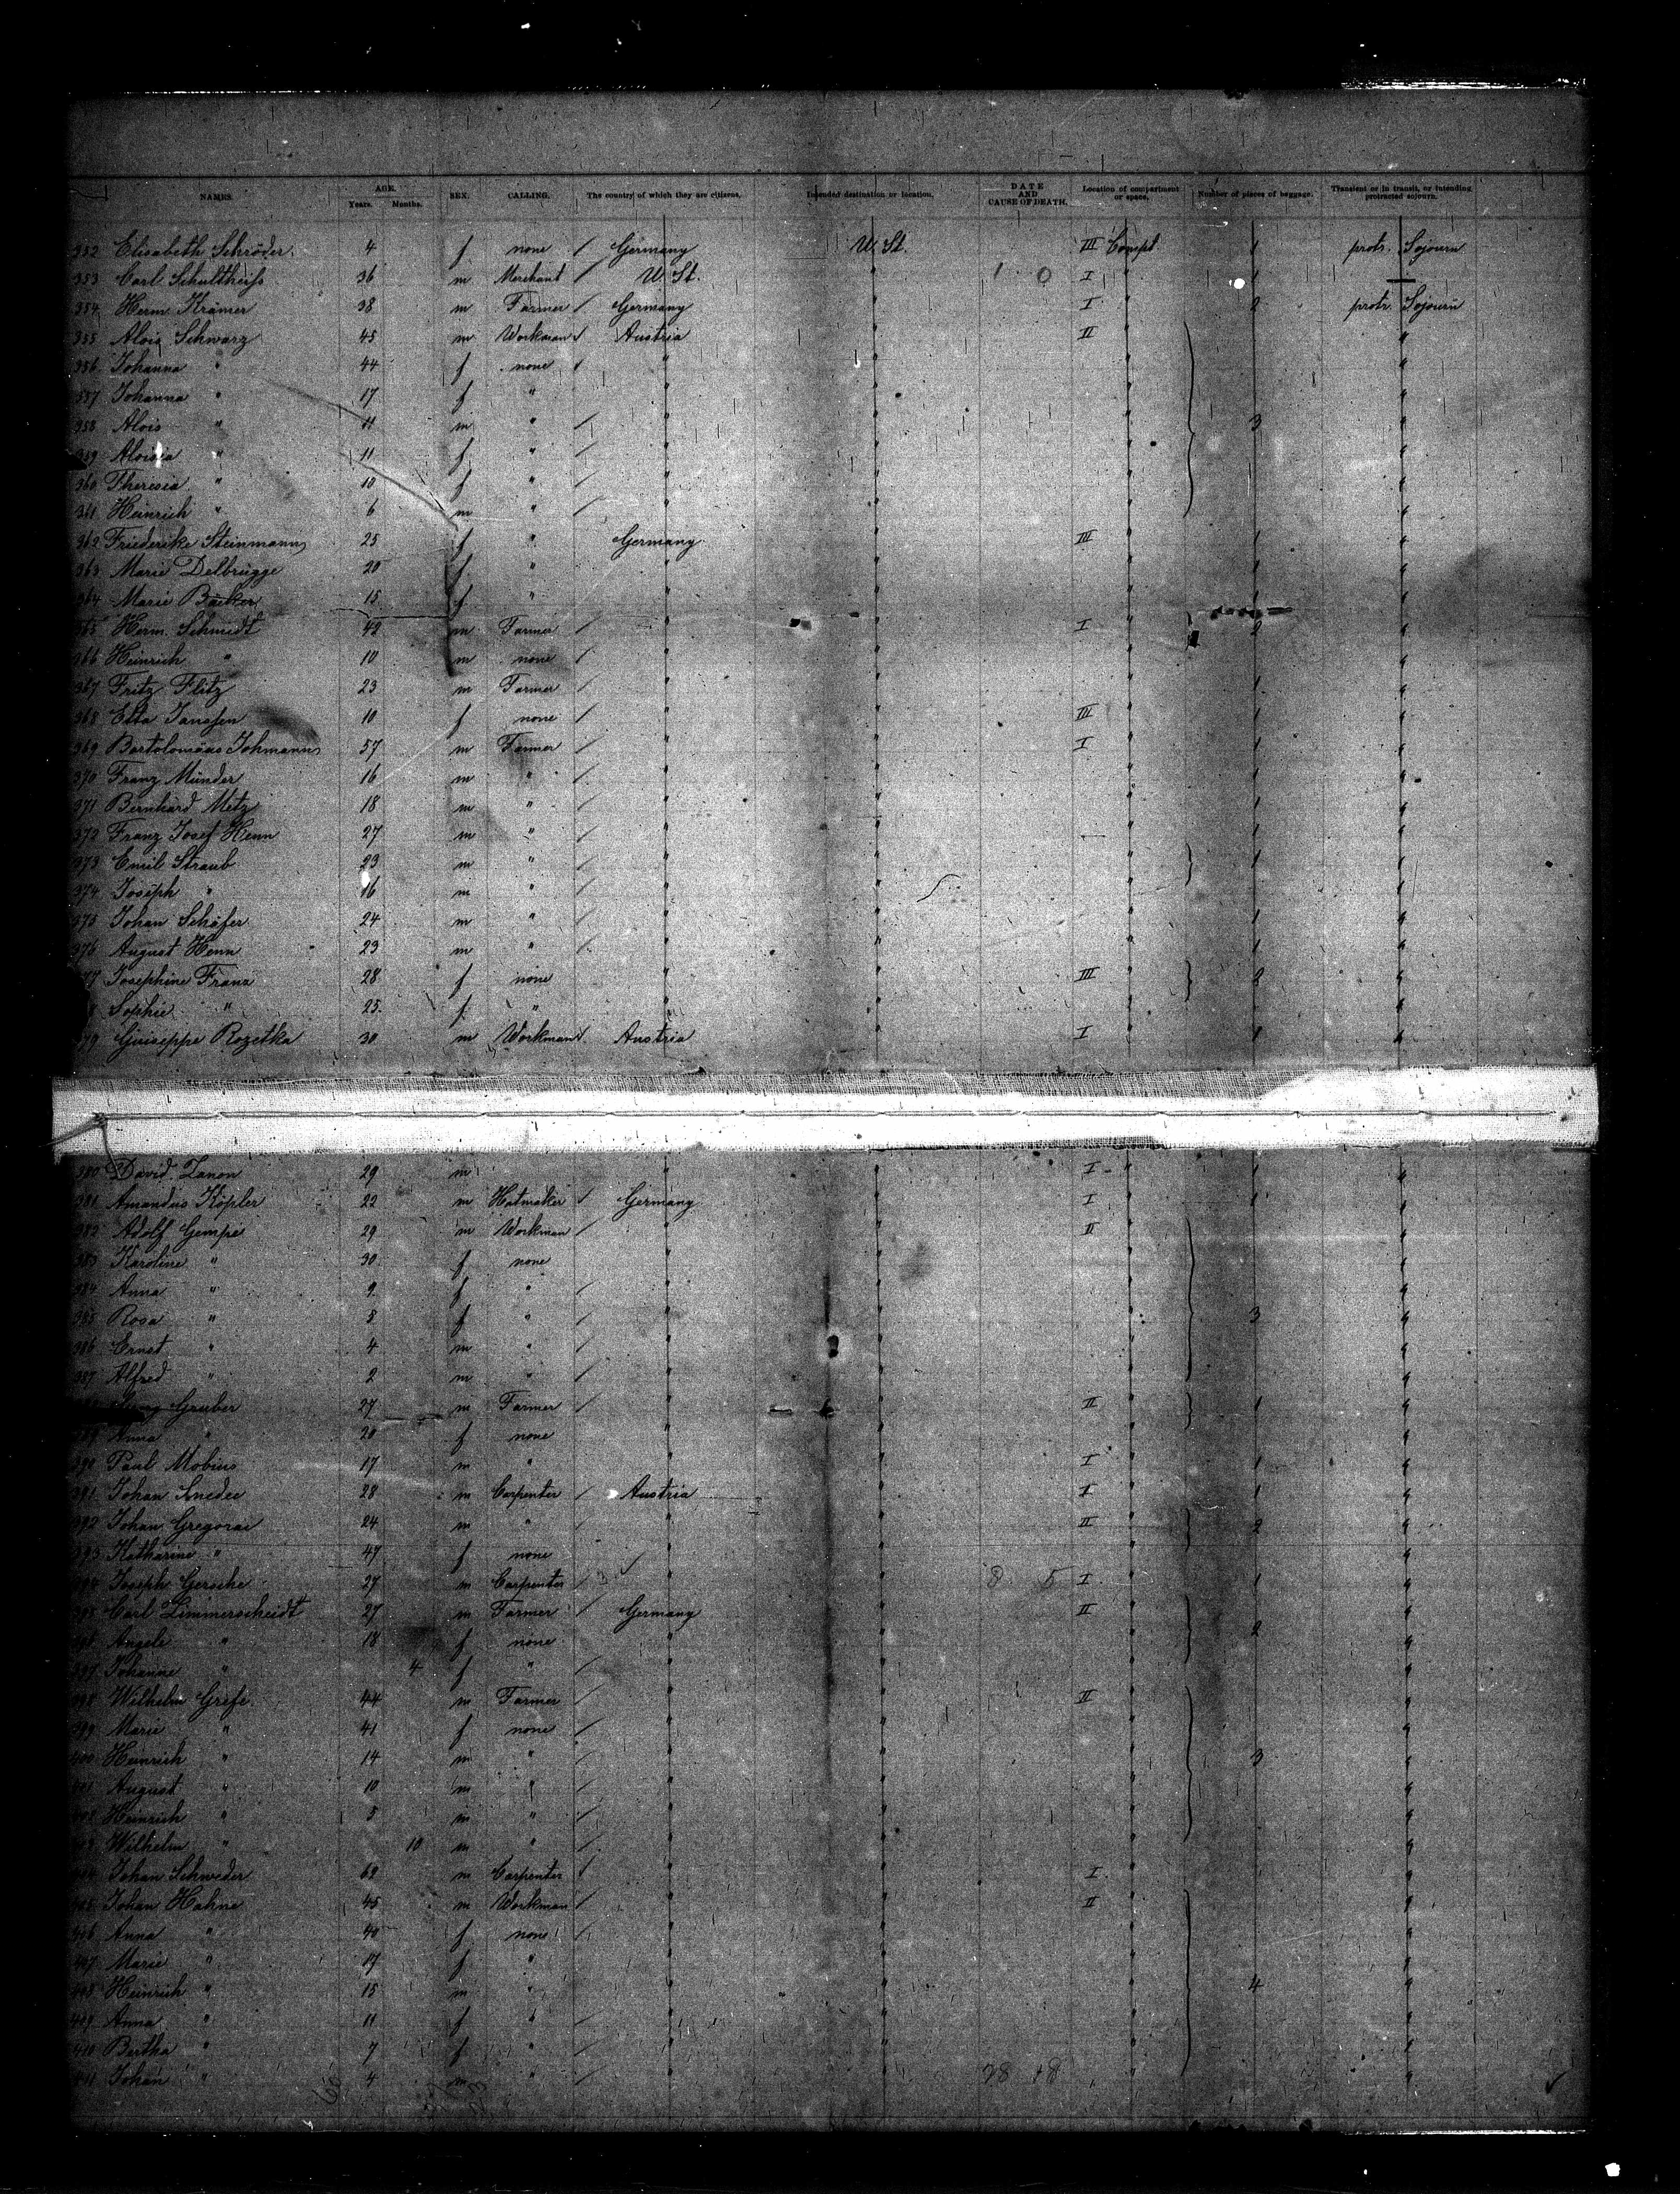 NAMES. AGE. Years. Months. SEX. CALLING. The country of which they are citizens. Intended destination or location. DATE AND CAUSE OF DEATH. Location of compartment or space. Number of pieces of baggage. Transient or in transit, or intending protracted sojourn.
352 Elisabeth Schröder. 4 f none / Germany U. St. III Compt. 1 protr. Sojourn
353 Carl Schultheiss 36 m Merchant / U. St. " 1 0 I " 1 —
354 Herm. Krämer 38 m Farmer / Germany " I " 2 protr. Sojourn
355 Alois Schwarz 45 m Workman / Austria " II " "
356 Johanna " 44 f none / " " " "
357 Johanna " 17 f " " " " "
358 Alois " 11 m " / " " " 3 "
359 Aloisia " 11 f " / " " " "
360 Theresia " 10 f " / " " " "
361 Heinrich " 6 m " / " " " "
362 Friederike Steinmann 25 f " Germany " III " 1 "
363 Marie Delbrügge 20 f " " " " 1 "
364 Marie Bäcker 15 f " " " " 1 "
365 Herm. Schmidt 42 m Farmer / " " I " 2 "
366 Heinrich " 10 m none / " " " "
367 Fritz Flitz 23 m Farmer / " " " 1 "
368 Etta Janssen 10 f none / " " III " 1 "
369 Bartolomäus Johmann 57 m Farmer / " " I " 1 "
370 Franz Münder 16 m " / " " " 1 "
371 Bernhard Metz 18 m " / " " " 1 "
372 Franz Josef Henn 27 m " / " " " 1 "
373 Emil Straub 23 m " / " " " 1 "
374 Joseph " 16 m " / " " " "
375 Johan Schäfer 24 m " / " " " 1 "
376 August Henn 23 m " / " " " 1 "
377 Josephine Franz 28 f none " " III " 2 "
Sophie " 25 f " " " " "
379 Guiseppe Rozetka 30 m Workman / Austria " I " 1 "
380 David Zanon 29 m " " I " 1 "
381 Amandus Köpler 22 m Hatmaker / Germany " I " 1 "
382 Adolf Gempe 29 m Workman / " " II " "
383 Karoline " 30 f none " " " "
384 Anna " 9 f " / " " " "
385 Rosa " 8 f " / " " " 3 "
386 Ernst " 4 m " / " " " "
387 Alfred " 2 m " / " " " "
Gruber 27 m Farmer / " " II " 1 "
389 Anna " 20 f none " " " "
390 Paul Mobius 17 m " " " I " 1 "
391 Johan Snedec 28 m Carpenter / Austria " I " 1 "
392 Johan Gregorac 24 m " " " II " 2 "
393 Katharine " 47 f none " " " "
394 Joseph Gersche 27 m Carpenter / " " 8 5 I " 1 "
395 Carl Limmerscheidt 27 m Farmer / Germany " II " "
396 Angela " 18 f none " " " 2 "
397 Johanne " 4 f " / " " " "
398 Wilhelm Grefe 44 m Farmer / " " II " "
399 Marie " 41 f none / " " " "
400 Heinrich " 14 m " / " " " 3 "
401 August " 10 m " / " " " "
402 Heinrich " 5 m " / " " " "
403 Wilhelm " 10 m " / " " " "
404 Johan Schweder 62 m Carpenter / " " I " 1 "
405 Johan Hahne 45 m Workman / " " II " "
406 Anna " 40 f none " " " "
407 Marie " 17 f " " " " "
408 Heinrich " 15 m " " " " 4 "
409 Anna " 11 f " / " " " "
410 Bertha " 7 f " / " " " "
411 Johan " 4 m " " " 28 18 " "